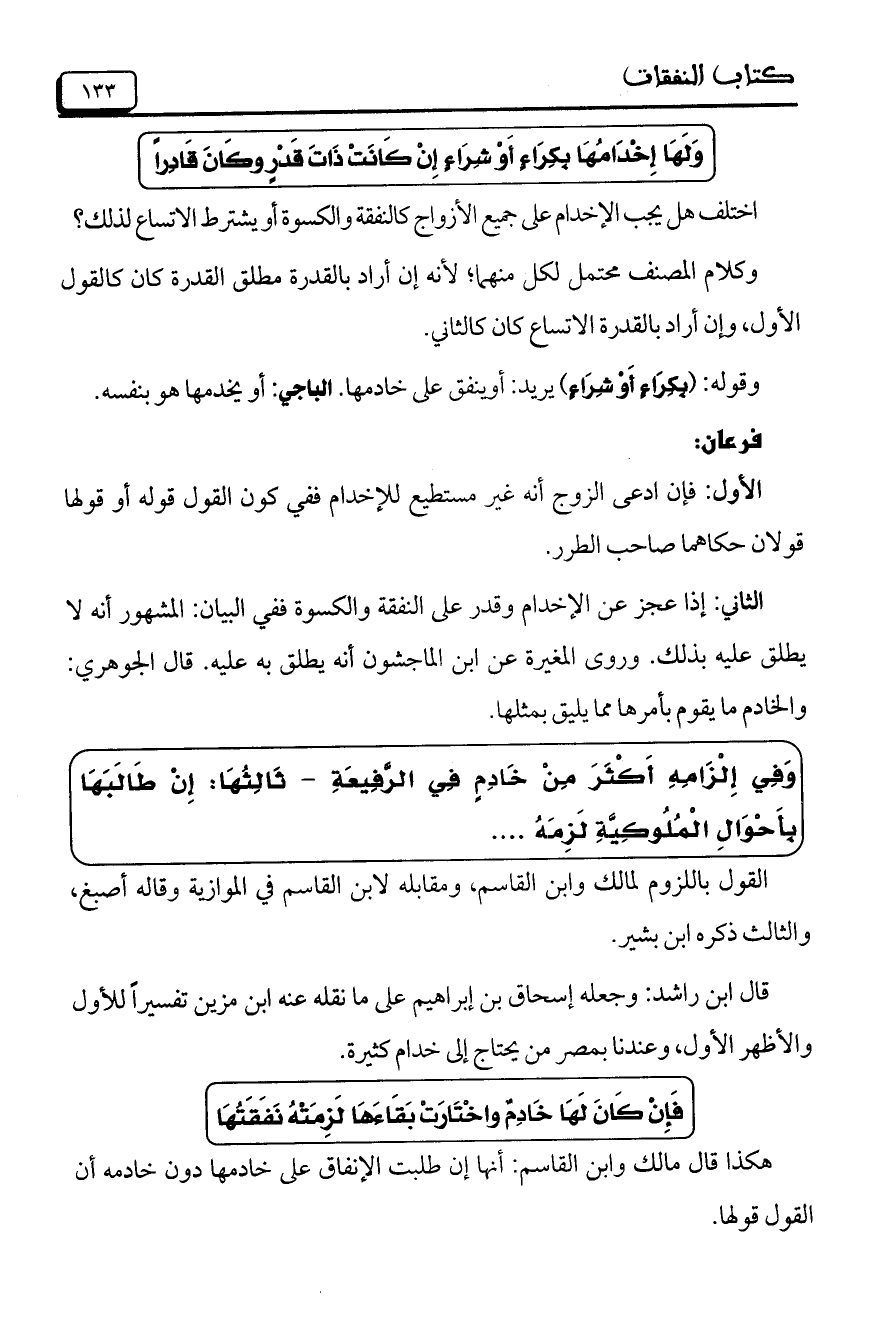 كتاب النفقات
١٣٣
وَلَهَا إِخْدَامُهَا بِكِرَاءٍ أَوْ شِرَاءٍ إِنْ كَانَتْ ذَاتَ قَدْرٍ وكَانَ قَادِراً
اختلف هل يجب الإخدام على جميع الأزواج كالنفقة والكسوة أو يشترط الاتساع لذلك؟
وكلام المصنف محتمل لكل منهما؛ لأنه إن أراد بالقدرة مطلق القدرة كان كالقول
الأول، وإن أراد بالقدرة الاتساع كان كالثاني.
وقوله: (بِكِرَاءٍ أَوْ شِرَاءٍ) يريد: أوينفق على خادمها. الباجي: أو يخدمها هو بنفسه.
فرعان:
الأول: فإن ادعى الزوج أنه غير مستطيع للإخدام ففي كون القول قوله أو قولها
قولان حكاهما صاحب الطرر.
الثاني: إذا عجز عن الإخدام وقدر على النفقة والكسوة ففي البيان: المشهور أنه لا
يطلق عليه بذلك. وروى المغيرة عن ابن الماجشون أنه يطلق به عليه. قال الجوهري:
والخادم ما يقوم بأمرها مما يليق بمثلها.
وَفِي إِلْزَامِهِ أَكْثَرَ مِنْ خَادِمٍ فِي الرَّفِيعَةِ - ثَالِثُهَا: إِنْ طَالَبَهَا
بِأَحْوَالِ الْمُلُوكِيَّةِ لَزِمَهُ ....
القول باللزوم لمالك وابن القاسم، ومقابله لابن القاسم في الموازية وقاله أصبغ،
والثالث ذكره ابن بشير.
قال ابن راشد: وجعله إسحاق بن إبراهيم على ما نقله عنه ابن مزين تفسيراً للأول
والأظهر الأول، وعندنا بمصر من يحتاج إلى خدام كثيرة.
فَإِنْ كَانَ لَهَا خَادِمٌ واخْتَارَتْ بَقَاءَهَا لَزِمَتْهُ نَفَقَتُهَا
هكذا قال مالك وابن القاسم: أنها إن طلبت الإنفاق على خادمها دون خادمه أن
القول قولها.